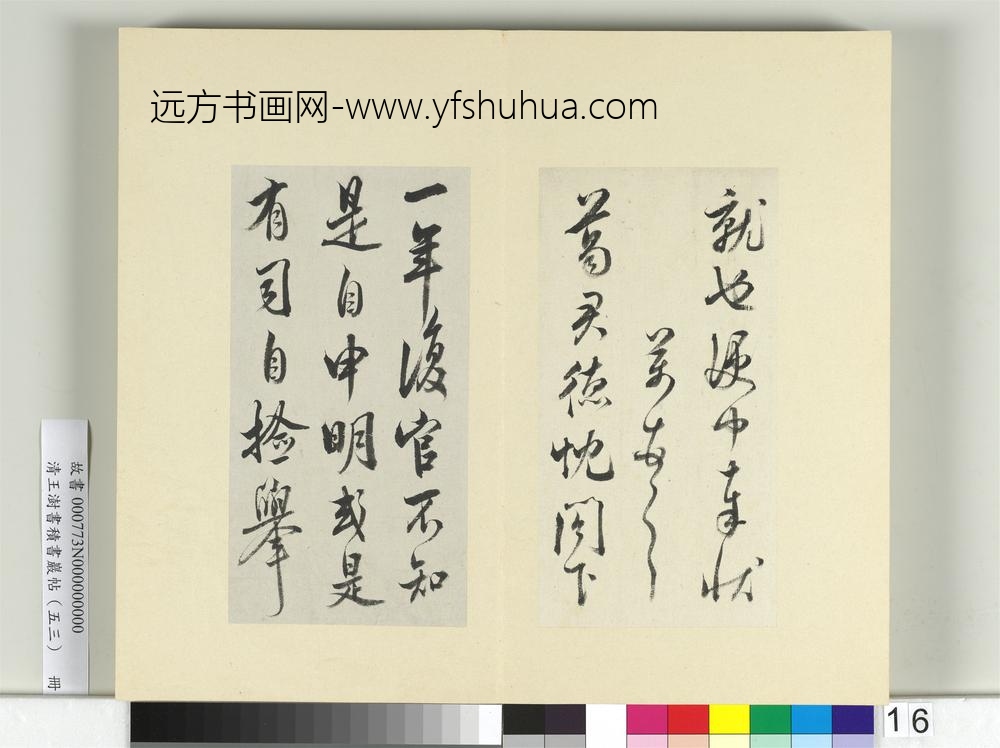 远方书画网-www.yfshuhua.com
就也遽中奉狀
葛君德忱閣下
一年復官不知
是自申明或是
有司自撿舉
故書 000773N000000000
清王澍書積書巖帖(五三) 冊
16